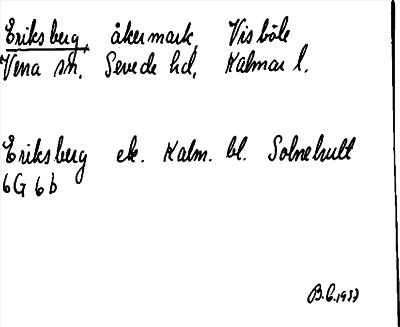 Eriksberg, åkermark, Visböle
Vena sn, Sevede hd, Kalmar l.
Eriksberg ek. Kalm. bl. Solnehult
6G 6b